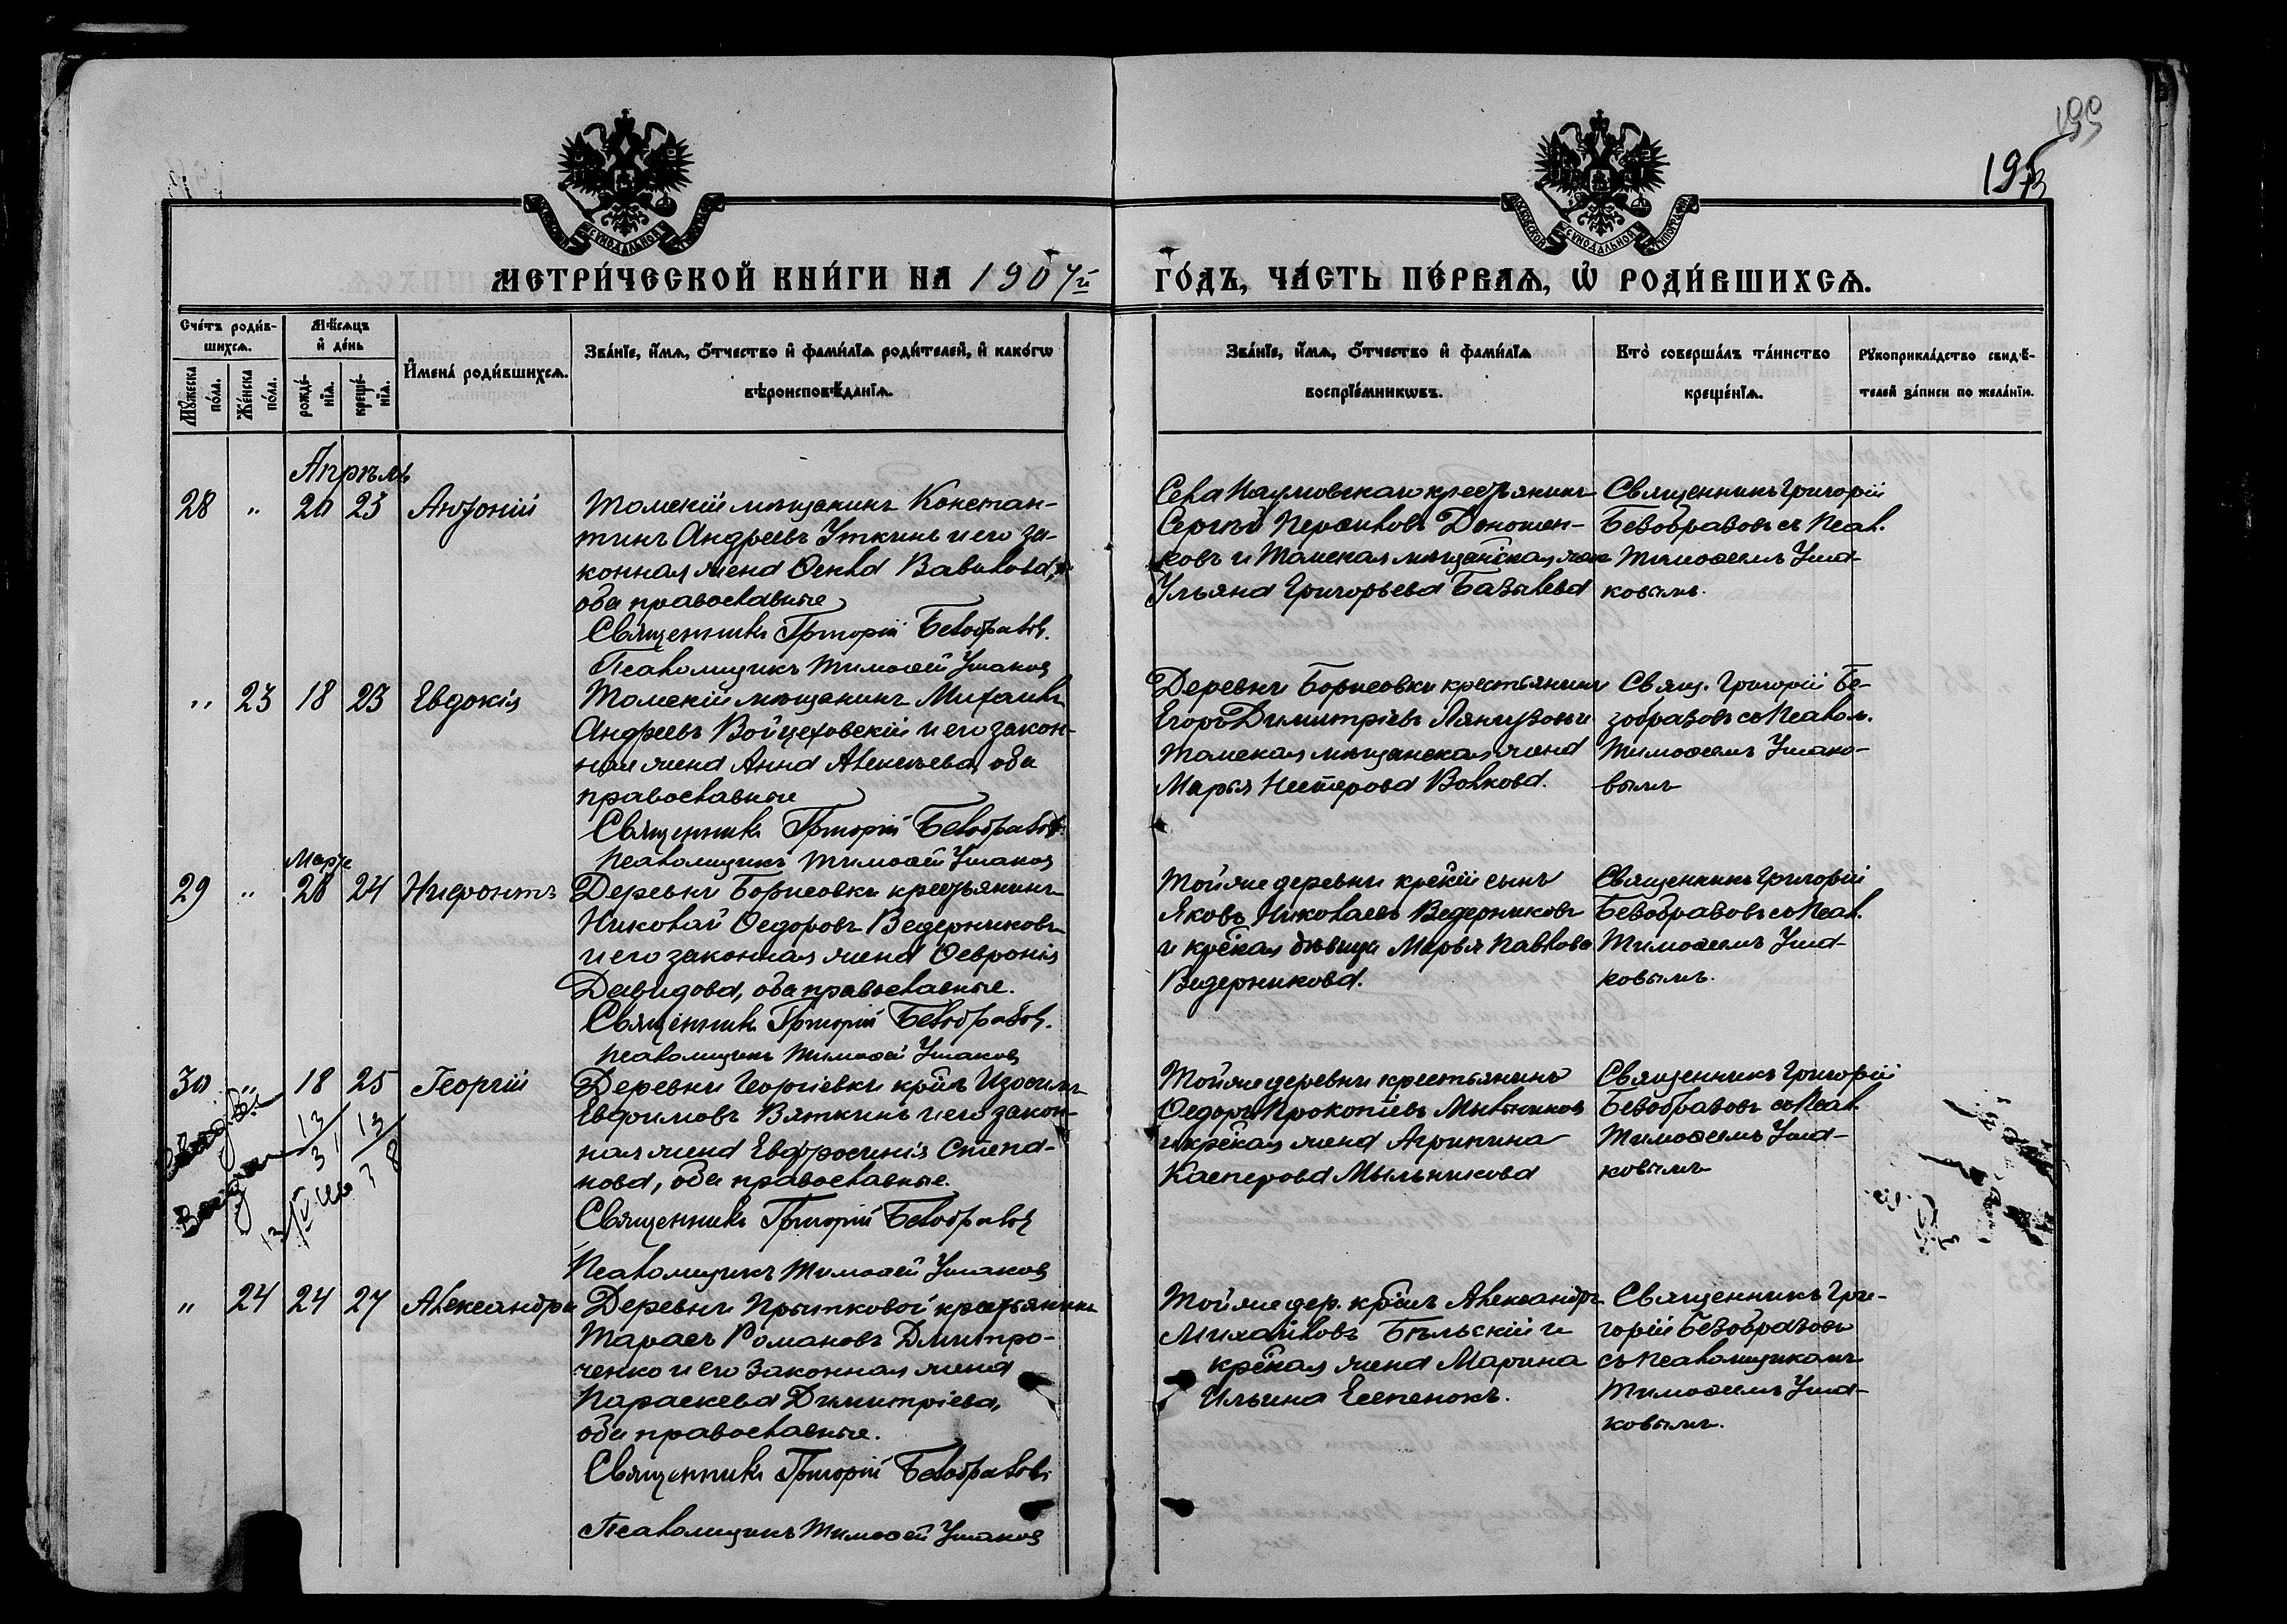 199
195
МОСКОВСКОЙ СУНОДАЛЬНОЙ ТИПОГРАФІИ
МОСКОВСКОЙ СУНОДАЛЬНОЙ ТИПОГРАФІИ
МЕТРИ́ЧЕСКОЙ КНИ́ГИ НА 1907й ГО́ДЪ, ЧА́СТЬ ПЕ́РВАЯ, Ѡ РОДИ́ВШИХСѦ.
Сче́тъ роди́в-
шихсѧ.
Му́жеска
по́ла.
Же́нска
по́ла.
Мѣ́сѧцъ
и҆ де́нь
рожде́-
нїѧ.
креще́-
нїѧ.
И҆мена̀ роди́вшихсѧ.
Зва́нїе, и҆́мѧ, ѻ҆́тчество и҆ фами́лїѧ роди́телей, и҆ како́гѡ
вѣроисповѣ́данїѧ.
Зва́нїе, и҆́мѧ, ѻ҆́тчество и҆ фами́лїѧ
воспрїе́мникѡвъ.
Кто̀ соверша́лъ та́инство
креще́нїѧ.
Рꙋкоприкла́дство свидѣ́-
телей за́писи по жела́нїю.
Апрѣль
28 " 20 23 Антоній
Томскій мѣщанинъ Констан-
тинъ Андреевъ Уткинъ и его за-
конная жена Оекла Вавилова,
оба православные
Священникъ Григорій Безобразовъ.
Псаломщикъ Тимоѳей Ушаковъ
Села Наумовскаго крестьянинъ
Сергѣй Перфиловъ Доношен-
ковъ и Томская мѣщанская жена
Ульяна Григорьева Базылева
Священникъ Григорій
Безобразовъ съ Псал.
Тимоѳеемъ Уша-
ковымъ.
" 23 18 23 Евдокія
Томскій мѣщанинъ Михаилъ
Андреевъ Войцеховскій и его закон-
ная жена Анна Алексѣева, оба
православные
Священникъ Григорій Безобразовъ.
Псаломщикъ Тимоѳей Ушаковъ
Деревни Борисовки крестьянинъ
Егоръ Димитріевъ Лянгузовъ и
Томская мѣщанская жена
Марья Нестерова Волкова.
Свящ. Григорій Бе-
зобразовъ съ Псалом.
Тимоѳеемъ Ушако-
вымъ
Марта
29 " 28 24 Нифонтъ
Деревни Борисовки крестьянинъ
Николай Ѳедоровъ Ведерниковъ
и его законная жена Ѳевронія
Давидова, оба православные.
Священникъ Григорій Безобразовъ.
Псаломщикъ Тимоѳей Ушаковъ
Той же деревни крскій сынъ
Яковъ Николаевъ Ведерниковъ
и крская дѣвица Марья Павлова
Ведерникова.
Священникъ Григорій
Безобразовъ съ Псал.
Тимоѳеемъ Уша-
ковымъ.
30 " 18 25 Георгій
Деревни Георгіевки крнъ Изосимъ
Евфимовъ Вяткинъ и его закон-
ная жена Евфросинія Степа-
нова, оба православные.
Священникъ Григорій Безобразовъ
Псаломщикъ Тимоѳей Ушаковъ
Той же деревни крестьянинъ
Ѳедоръ Прокопіевъ Мыльниковъ
и крская жена Агрипина
Касперова Мыльникова
Священникъ Григорій
Безобразовъ съ Псал.
Тимоѳеемъ Уша-
ковымъ
" 24 24 27 Александра
Деревни Прытковой крестьянинъ
Тарасъ Романовъ Дмитро-
ченко и его законная жена
Параскева Димитріева,
оба православные.
Священникъ Григорій Безобразовъ
Псаломщикъ Тимоѳей Ушаковъ
Той же дер. крнъ Александръ
Михайловъ Бѣльскій и
крская жена Марина
Ильина Есепенокъ.
Священникъ Гри-
горій Безобразовъ
съ Псаломщикомъ
Тимоѳеемъ Уша-
ковымъ.